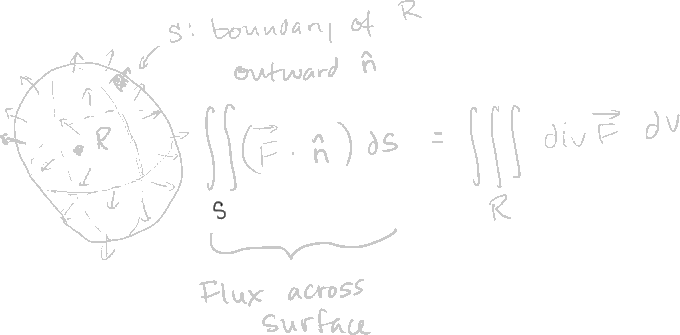 S: boundary of R
outward n̂
R
∬(F⃗ · n̂) ds = ∭ div F⃗ dV
S R
Flux across
surface